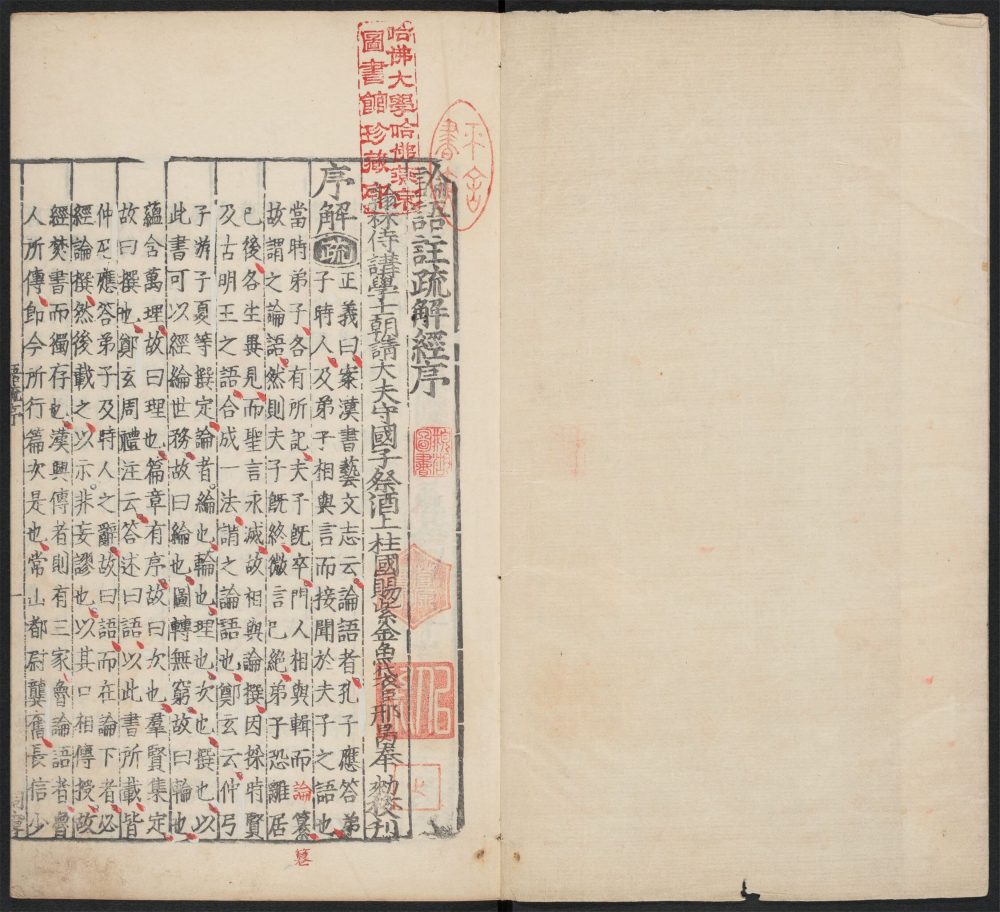 論語註疏解經序
翰林侍講學士朝請大夫守國子祭酒上柱國賜紫金魚袋臣邢昺奉 勑校刊
序解疏正義曰案漢書藝文志云論語者孔子應答弟
子時人及弟子相與言而接聞於夫子之語也
當時弟子各有所記夫子既卒門人相與輯而論纂
故謂之論語然則夫子既終微言已絶弟子恐離居
已後各生異見而聖言永滅故相與論撰因採時賢
及古明王之語合成一法謂之論語也鄭玄云仲弓
子游子夏等撰定論者綸也輪也理也次也撰也以
此書可以經綸世務故曰綸也圓轉無窮故曰輪也
蘊含萬理故曰理也篇章有序故曰次也羣賢集定
故曰撰也鄭玄周禮注云答述曰語以此書所載皆
仲尼應答弟子及時人之辭故曰語而在論下者必
經論撰然後載之以示非妄謬也以其口相傳授故
經焚書而獨存也漢興傳者則有三家魯論語者魯
人所傳即今所行篇次是也常山都尉龔奮長信少
語疏序
一
哈佛大學哈佛燕京
圖書館珍藏印
纂